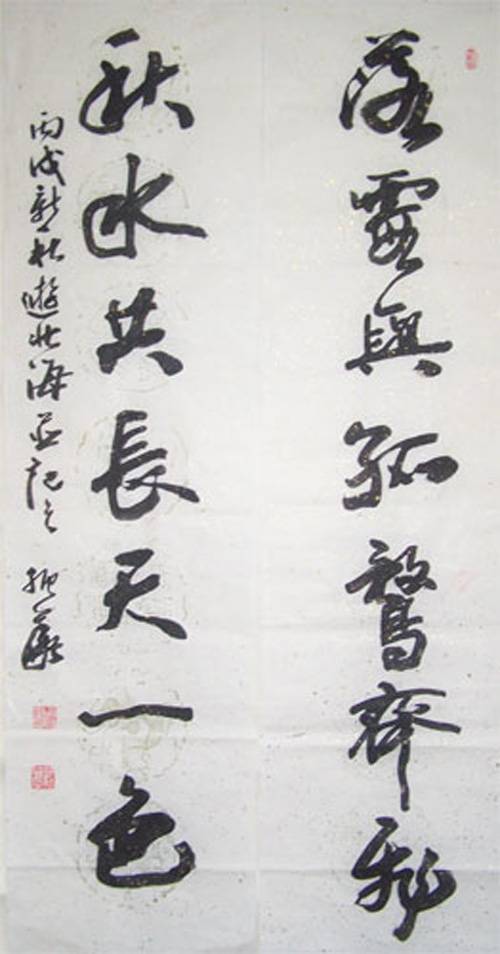 落霞與孤鶩齊飛
秋水共長天一色
丙戌新秋遊北海並記之